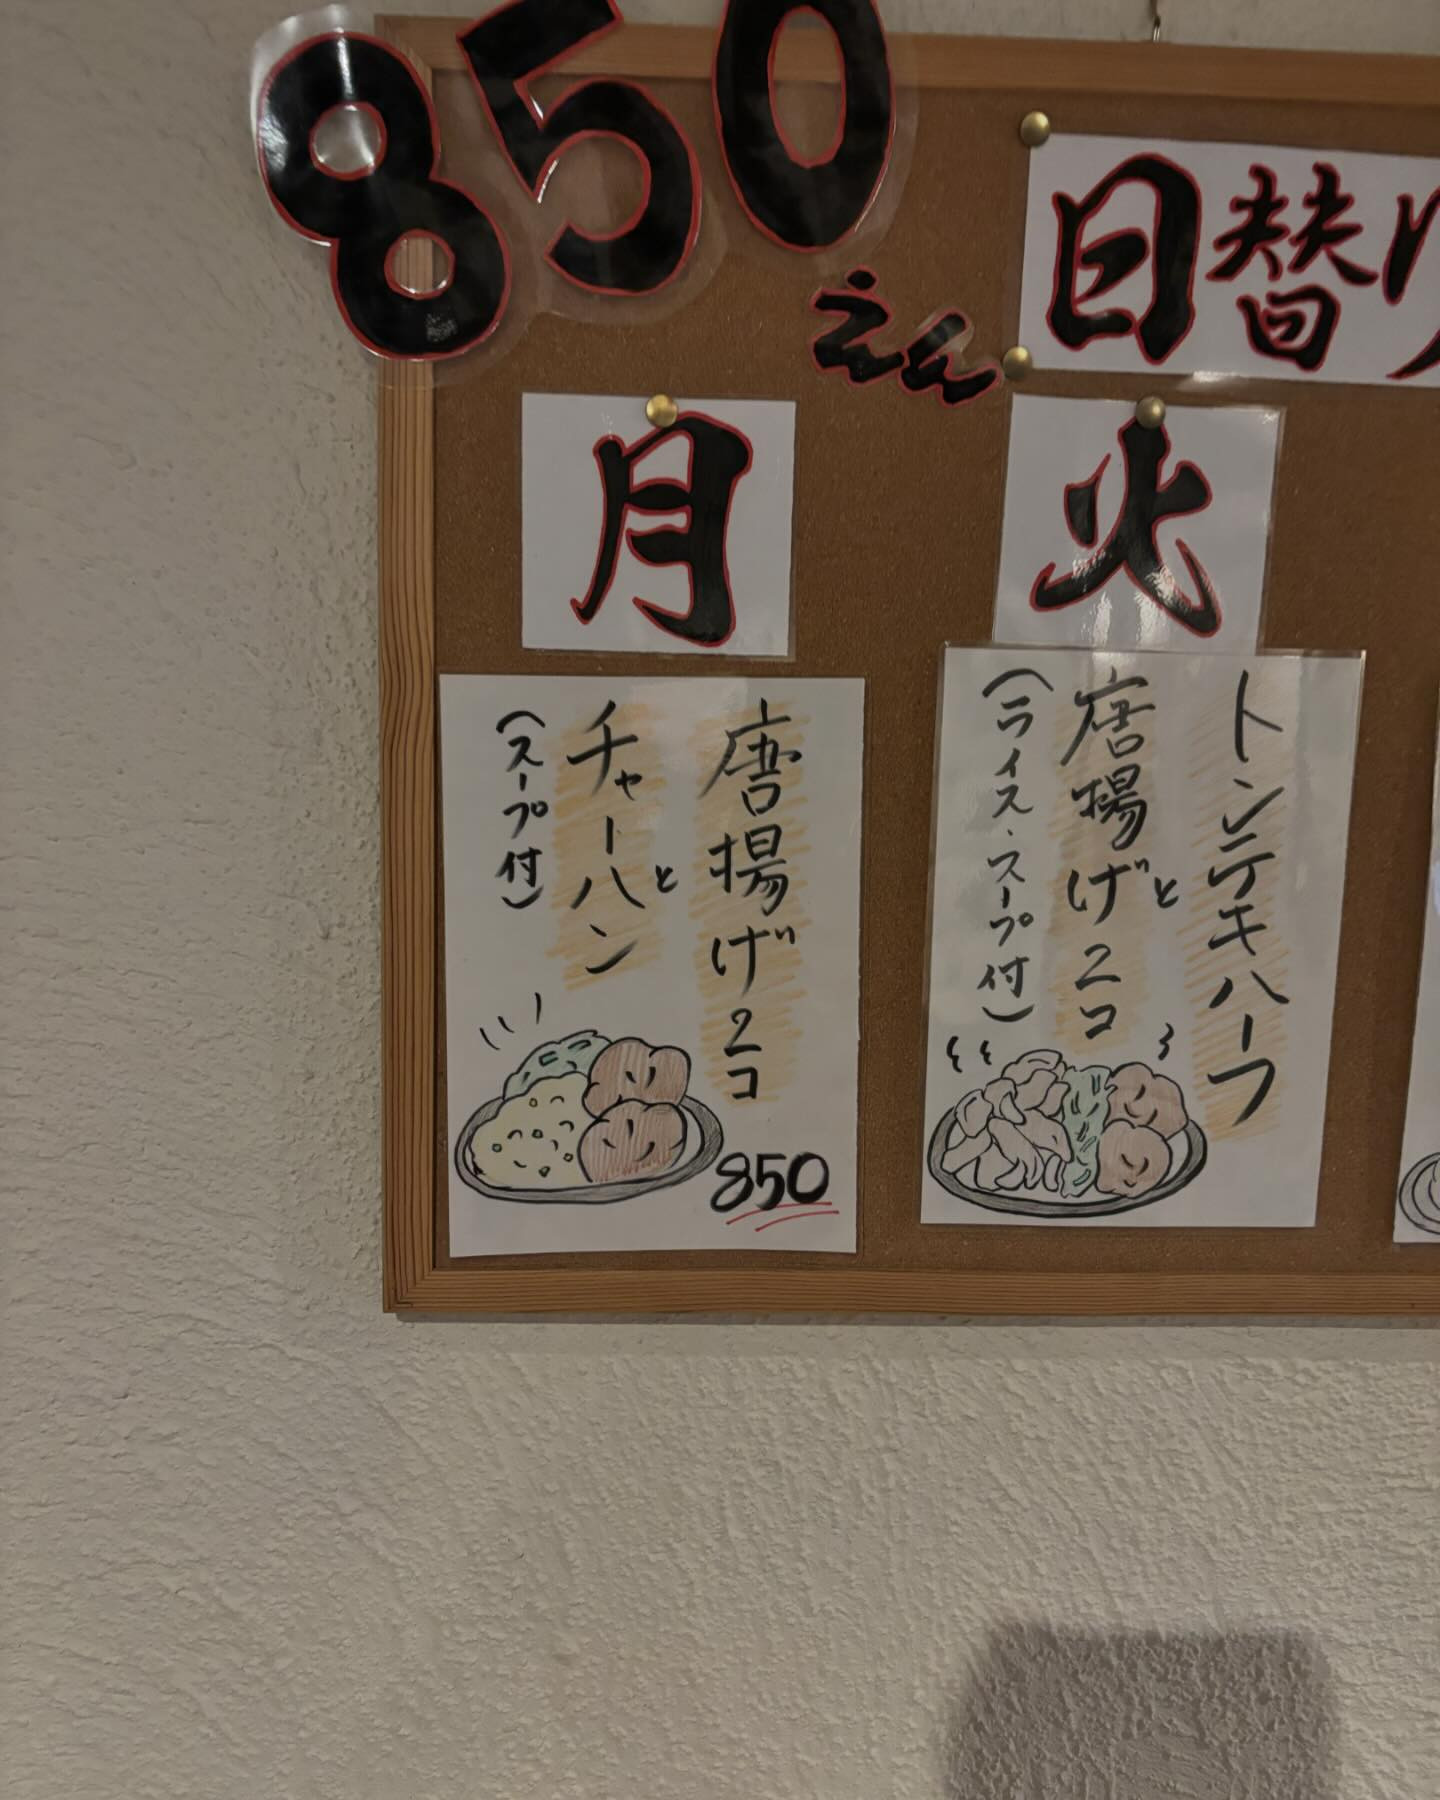 850
えん
日替り
月
唐揚げ2コ
と
チャーハン
(スープ付)
850
火
トンテキハーフ
と
唐揚げ2コ
(ライス・スープ付)